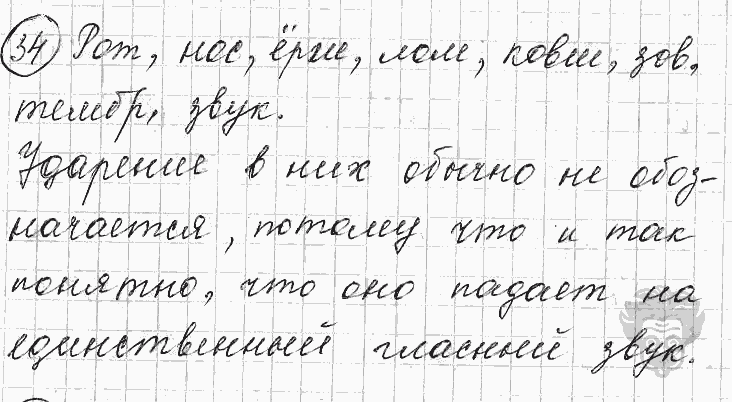 34 Рот, нос, ёрш, лом, ковш, зов,
тембр, звук.
Ударение в них обычно не обоз-
начается, потому что и так
понятно, что оно падает на
единственный гласный звук.